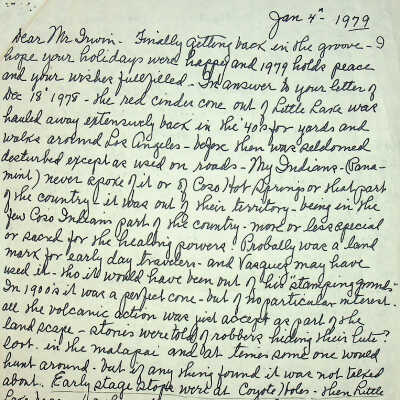 Jan 4th - 1979
Dear Mr Irwin - Finally getting back in the groove - I
hope your holidays were happy and 1979 holds peace
and your wishes fullfilled - In answer to your letter of
Dec 18' 1978 - the red cinder cone out of Little Lake was
hauled away extensively back in the '40s for yards and
walks around Los Angeles - before then was seldomed
desturbed except as used on roads - My Indians - (Pana-
mint) never spoke of it or of Coso Hot Springs or that part
of the country - it was out of their territory - being in the
few Coso Indians part of the country - more or less special
or sacred for the healing powers. Probally was a land
mark for early day travelers - and Vasques may have
used it - tho it would have been out of his stamping grounds -
In 1900's it was a perfect cone - but of no particular interest.
all the volcanic action was just accept as part of the
landscape - stories were told of robbers hiding their lute?
loot. in the malapai and at times some one would
hunt around - but if any thing found it was not talked
about. Early stage stops were at Coyote Holes - then Little